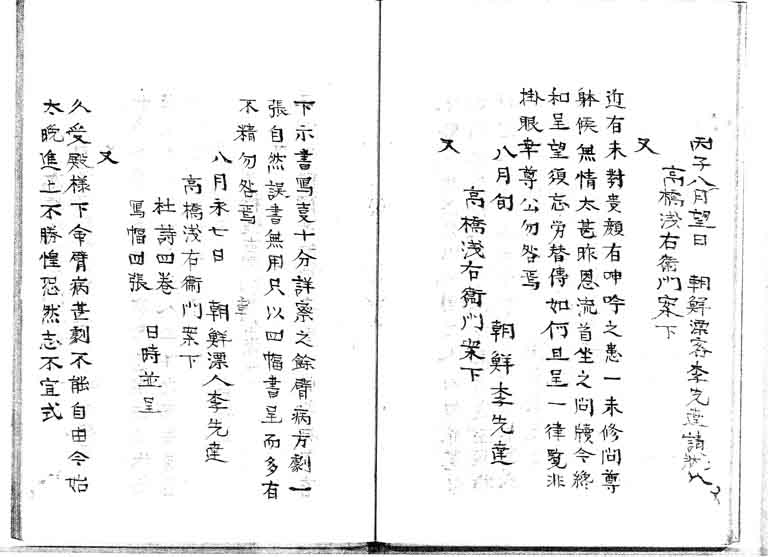 丙子八月望日　朝鮮漂客李先達請
高橋浅右衛門案下
又
近有未對貴顔有呻吟之患一未修問尊
躰候無情太甚昨恩流首坐之问牘令終
和呈望須忘労替傳如何且呈一律覧非
掛眼幸尊公勿咎焉
八月旬　朝鮮李先達
高橋浅右衛門案下
又
下示書寫哀十分詳察之餘臂病方劇一
張自然誤書無用只以四幅書呈而多有
不精勿咎焉
八月永七日　朝鮮漂人李先達
高橋浅右衛門案下
杜詩四巻
寫幅四張　日時並呈
又
久受殿様下命臂病甚劇不能自由今始
太晩進上不勝惶恐然志不宜式